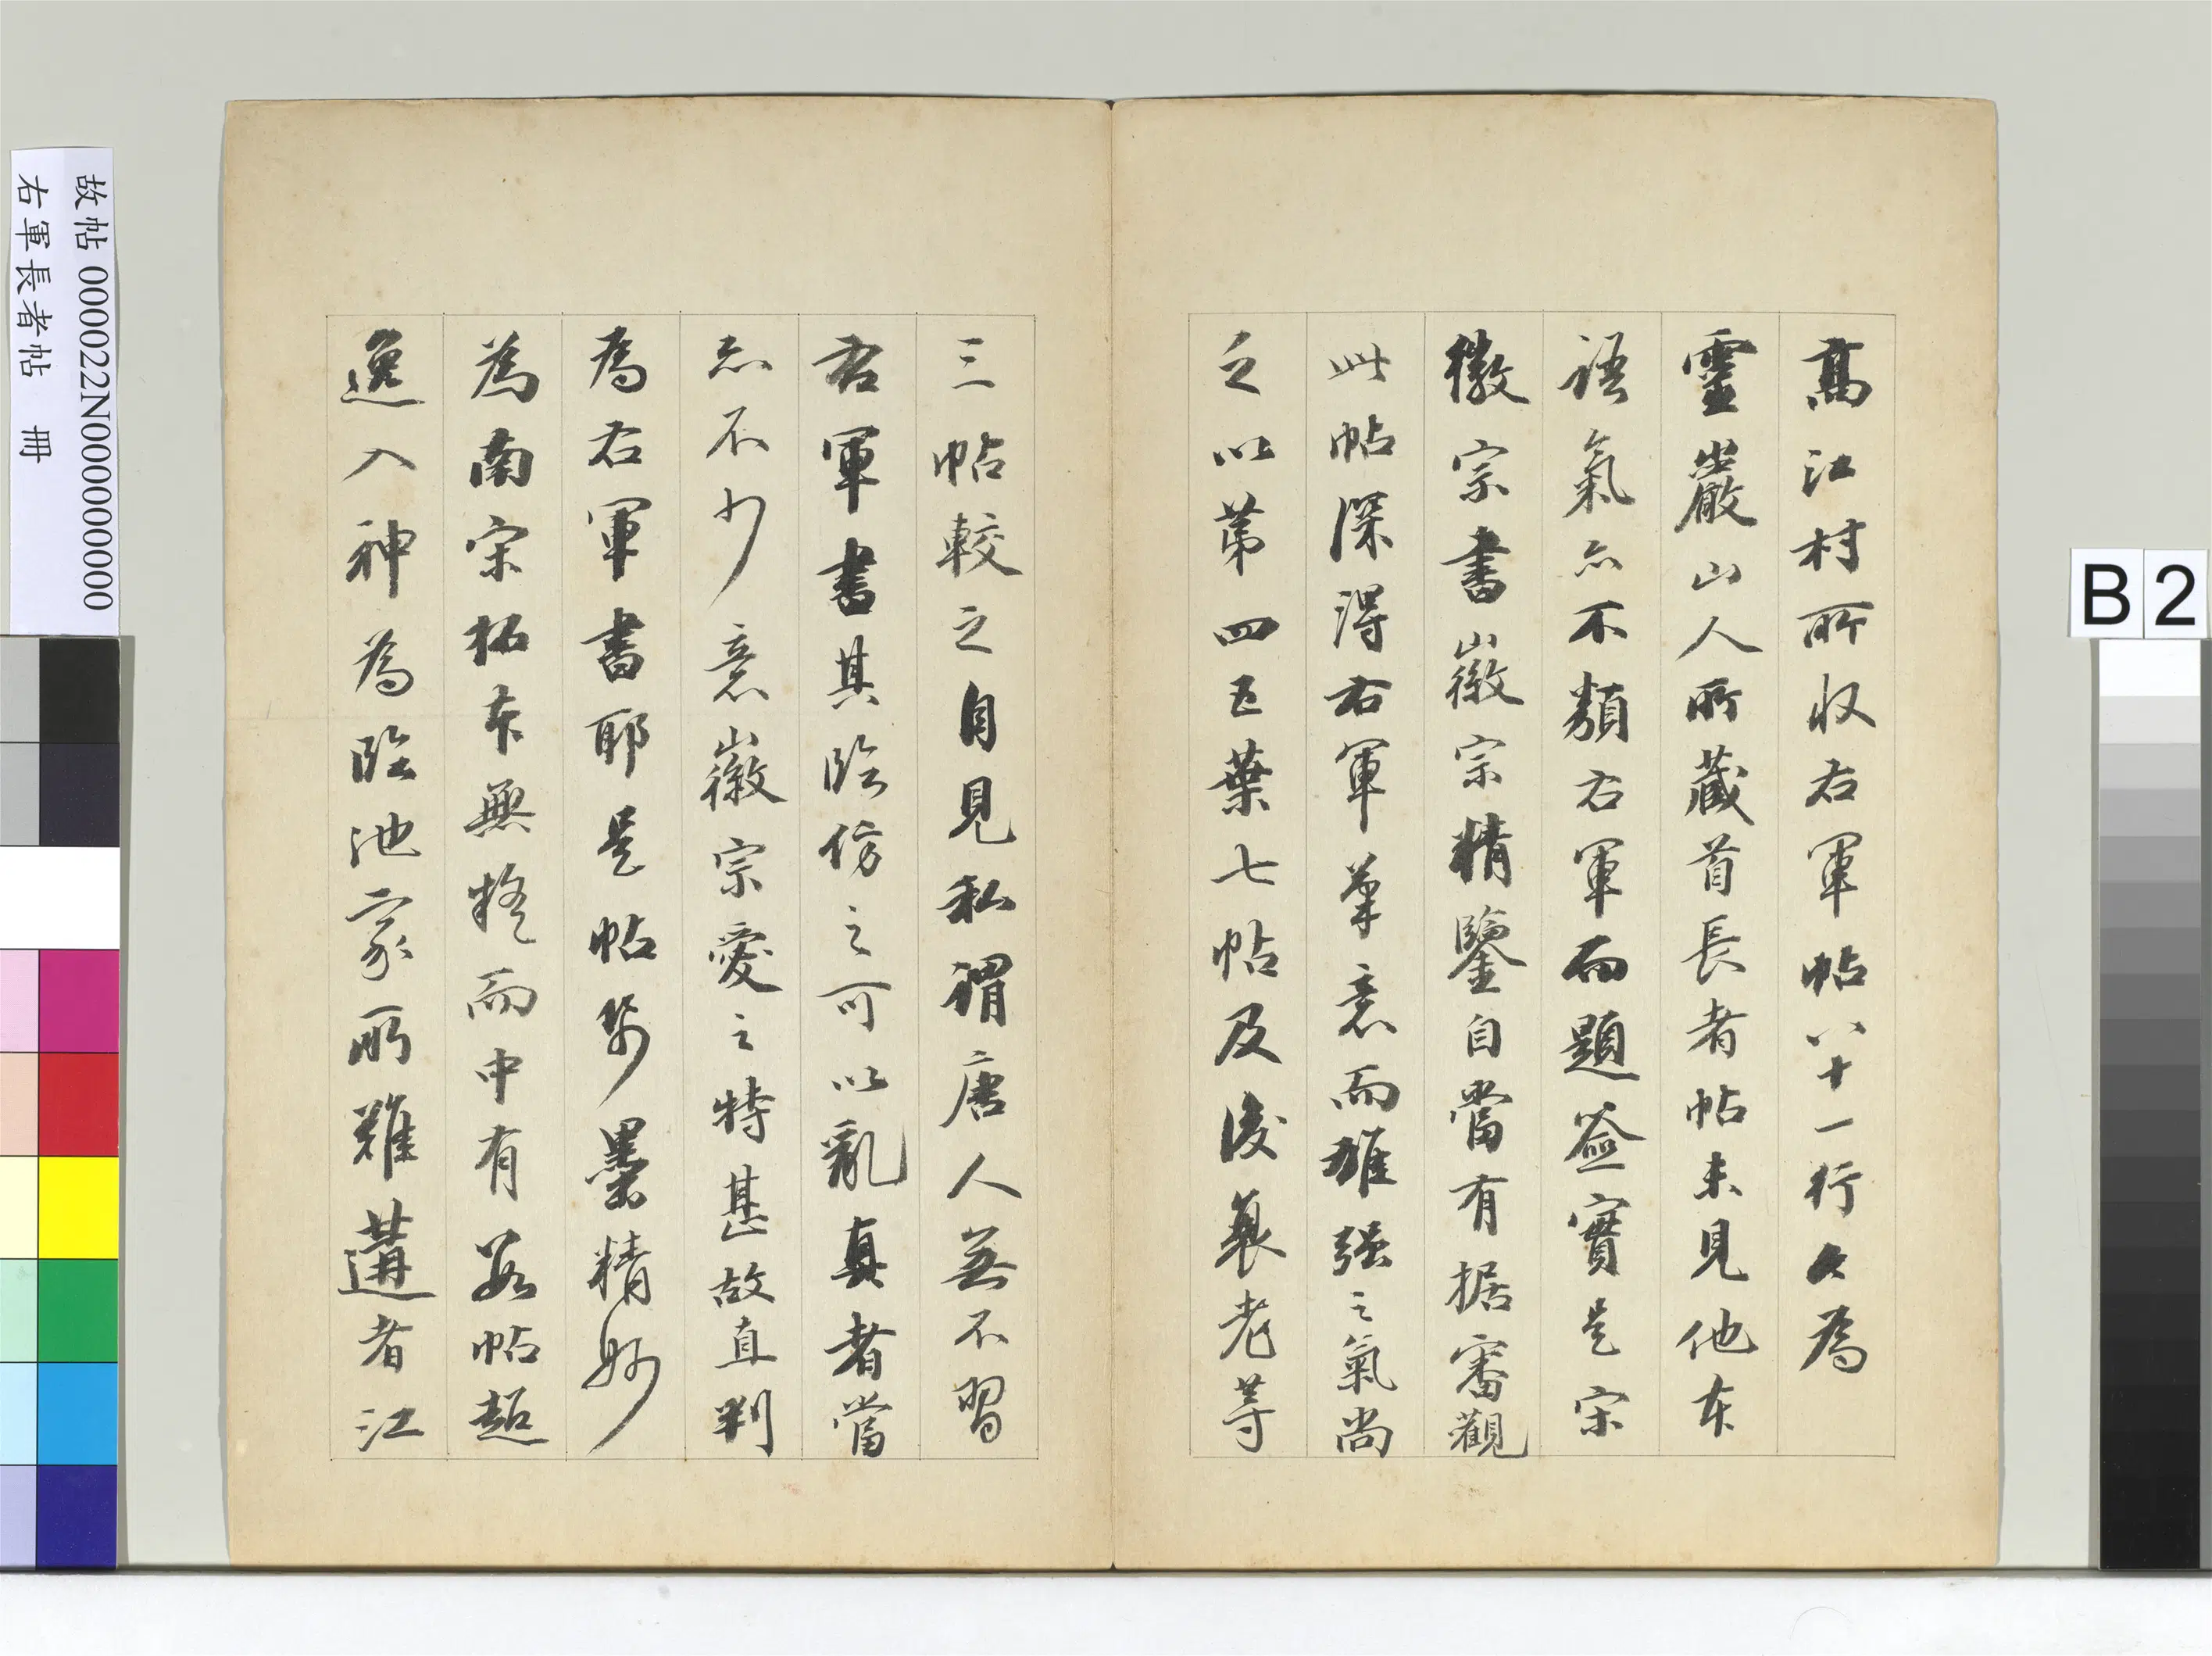 高江村所收右軍帖八十一行久為
靈巖山人所藏首長者帖未見他本
語氣亦不類右軍而題簽實是宋
徽宗書徽宗精鑒自當有据審觀
此帖深得右軍筆意而雄强之氣尚
乏以第四五葉七帖及後蓑老等
三帖較之自見私謂唐人無不習
右軍書其臨仿之可以亂真者當
亦不少意徽宗愛之特甚故直判
為右軍書耶是帖帋墨精妙
為南宋拓本無疑而中有數帖超
逸入神為臨池家所難遘者江
故帖 000022N000000000
右軍長者帖 冊
B 2